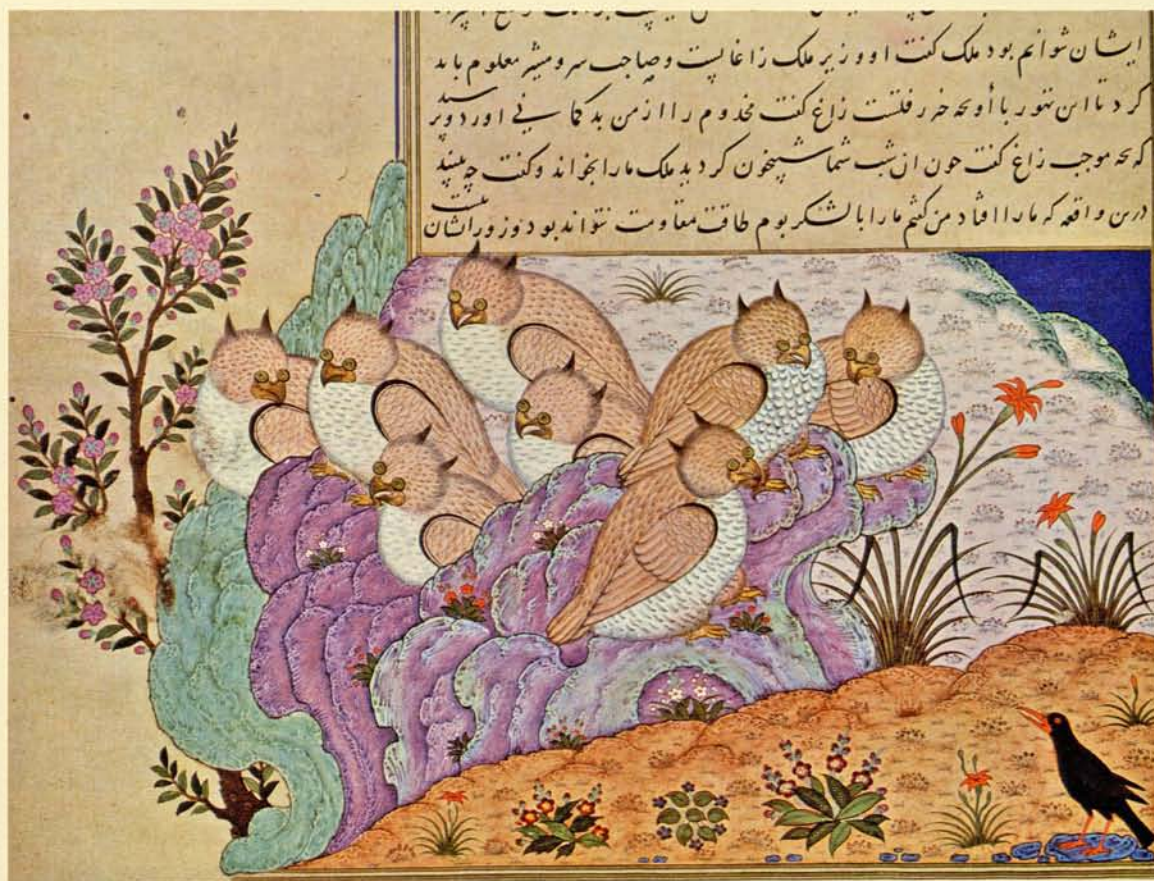 ایشان شوانم بود ملک کفت او وزیر ملک زاغانست وصاحب سر و مشیر معلوم باید
کرد تا این تهور با زاغ کفت مخدوم را از من بد کمانی اورد و پرسید
که بحه موجب زاغ کفت حون ان شب شما شبیخون کردید ملک مارا بخواند وکفت چه بینید
درین واقعه که مارا افتاد من کفتم مارا با لشکر بوم طاقت مقاومت نتواند بود